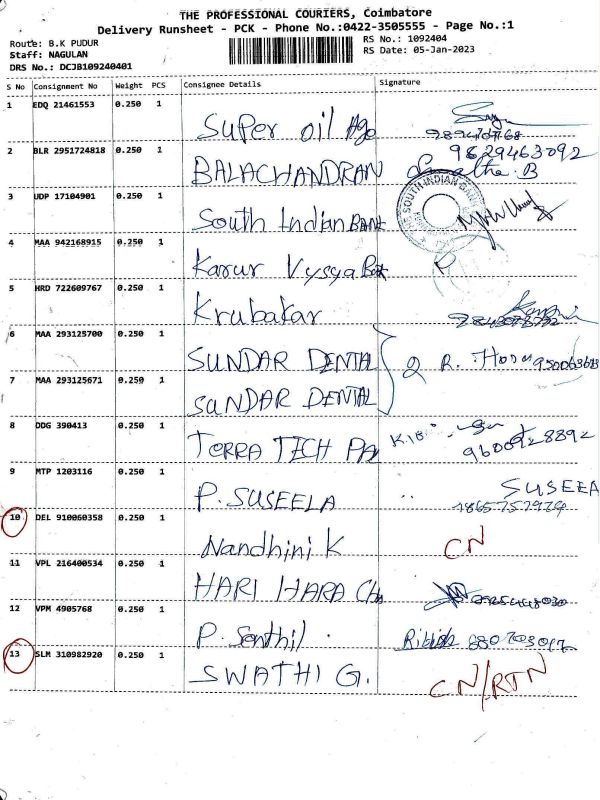 THE PROFESSIONAL COURIERS, Coimbatore
Delivery Runsheet - PCK - Phone No.:0422-3505555 - Page No.:1
Route: B.K PUDUR
RS No.: 1092404
Staff: NAGULAN
RS Date: 05-Jan-2023
DRS No.: DCJB109240401
S No Consignment No Weight PCS Consignee Details Signature
1 EDQ 21461553 0.250 1 Super oil Age
2 BLR 2951724818 0.250 1 BALACHANDRAN 9829463092
3 UDP 17104901 0.250 1 South Indian BANK
4 MAA 942168915 0.250 1 Karur Vysya Bank
5 HRD 722609767 0.250 1 Krubakar
6 MAA 293125700 0.250 1 SUNDAR DENTAL
7 MAA 293125671 0.250 1 SUNDAR DENTAL
8 DDG 390413 0.250 1 TERRA TECH PA 9600928892
9 MTP 1203116 0.250 1 P. SUSEELA SUSEEA
10 DEL 910060358 0.250 1 Nandhini K CN
11 VPL 216400534 0.250 1 HARI HARA
12 VPM 4905768 0.250 1 P. Senthil
13 SLM 310982920 0.250 1 SWATHI G. CN/RTN